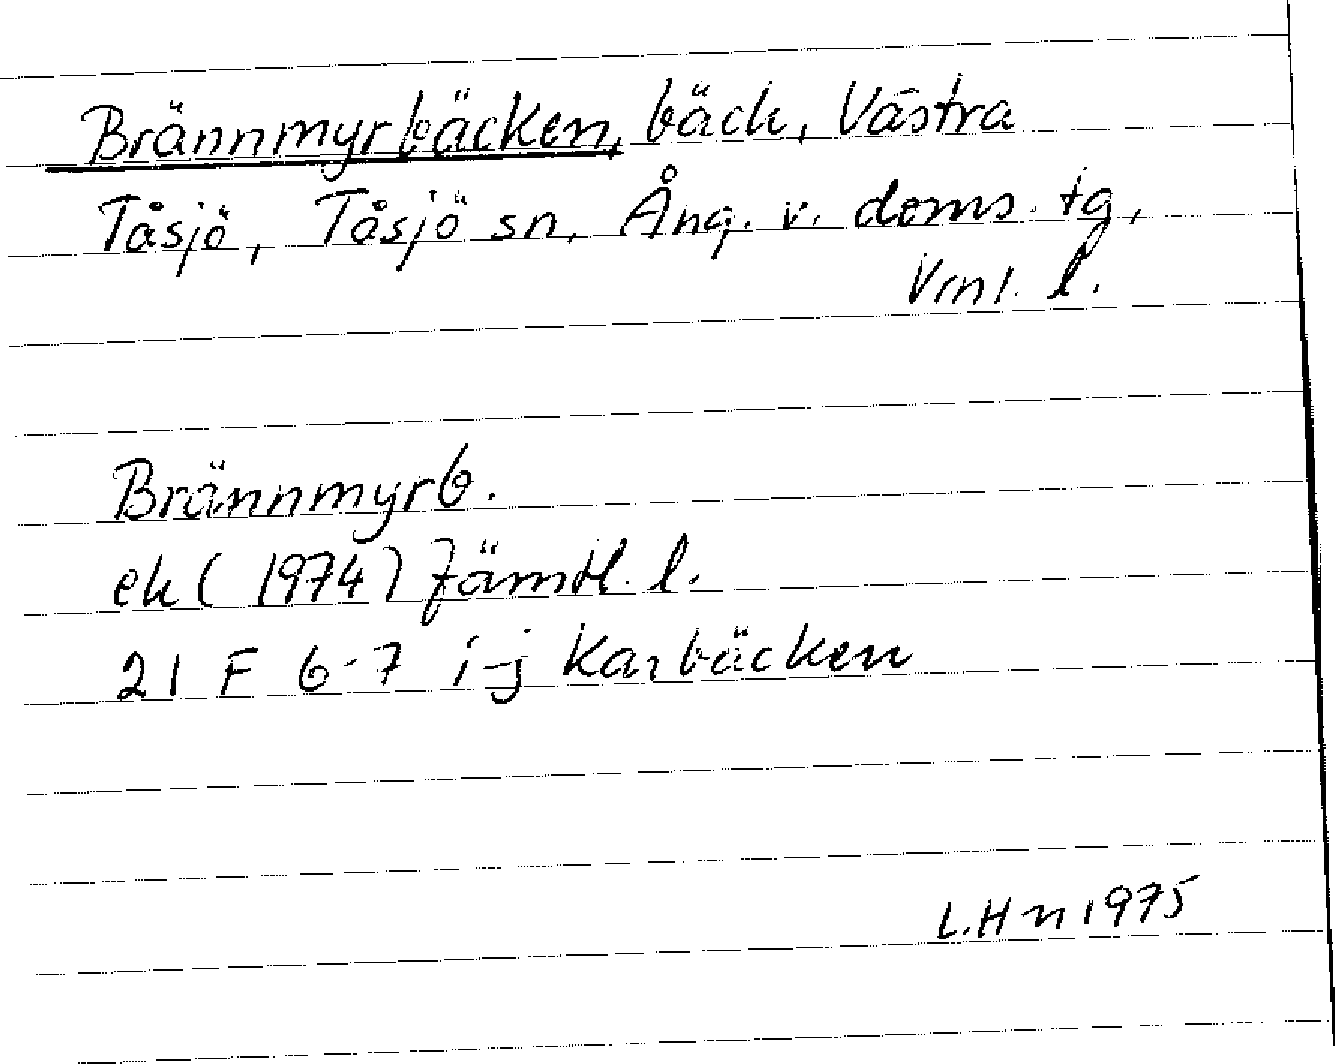 Brännmyrbäcken, bäck, Västra
Tåsjö, Tåsjö sn, Ång. v. doms. tg,
Vrnl. l.
Brännmyrb.
ek (1974) Jämtl. l.
21 F 6-7 i-j Karbäcken
L.Hn 1975